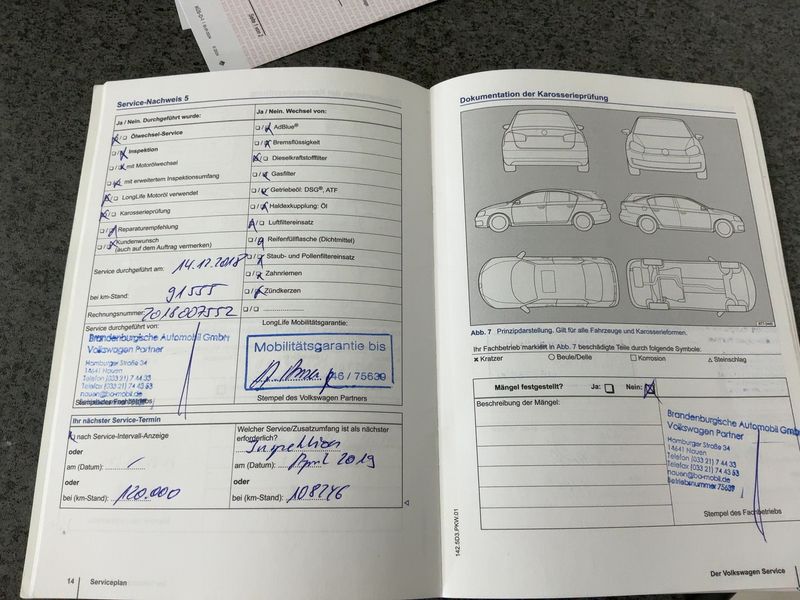 Seite 1 von 2
Service-Nachweis 5
Ja / Nein. Durchgeführt wurde:
Ölwechsel-Service
Inspektion
mit Motorölwechsel
mit erweitertem Inspektionsumfang
LongLife Motoröl verwendet
Karosserieprüfung
Reparaturempfehlung
Kundenwunsch
(auch auf dem Auftrag vermerken)
Service durchgeführt am: 14.12.2018
bei km-Stand: 91555
Rechnungsnummer: 2018007552
Service durchgeführt von:
Brandenburgische Automobil GmbH
Volkswagen Partner
Hamburger Straße 34
14641 Nauen
Telefon (033 21) 7 44 33
Telefax (033 21) 74 43 53
nauen@ba-mobil.de
Ja / Nein. Wechsel von:
AdBlue®
Bremsflüssigkeit
Dieselkraftstofffilter
Gasfilter
Getriebeöl: DSG®, ATF
Haldexkupplung: Öl
Luftfiltereinsatz
Reifenfüllflasche (Dichtmittel)
Staub- und Pollenfiltereinsatz
Zahnriemen
Zündkerzen
LongLife Mobilitätsgarantie:
Mobilitätsgarantie bis
/ 75639
Stempel des Volkswagen Partners
Ihr nächster Service-Termin
nach Service-Intervall-Anzeige
oder
am (Datum):
oder
bei (km-Stand): 120.000
Welcher Service/Zusatzumfang ist als nächster
erforderlich?
Inspektion
am (Datum): April 2019
oder
bei (km-Stand): 108246
14 Serviceplan
Dokumentation der Karosserieprüfung
Abb. 7 Prinzipdarstellung. Gilt für alle Fahrzeuge und Karosserieformen.
Ihr Fachbetrieb markiert in Abb. 7 beschädigte Teile durch folgende Symbole.
x Kratzer O Beule/Delle □ Korrosion △ Steinschlag
Mängel festgestellt? Ja: Nein:
Beschreibung der Mängel:
Brandenburgische Automobil Gmb
Volkswagen Partner
Hamburger Straße 34
14641 Nauen
Telefon (033 21) 7 44 33
Telefax (033 21) 74 43 53
nauen@ba-mobil.de
Betriebsnummer 75639
Stempel des Fachbetriebs
142.5D3.PKW.01
Der Volkswagen Service